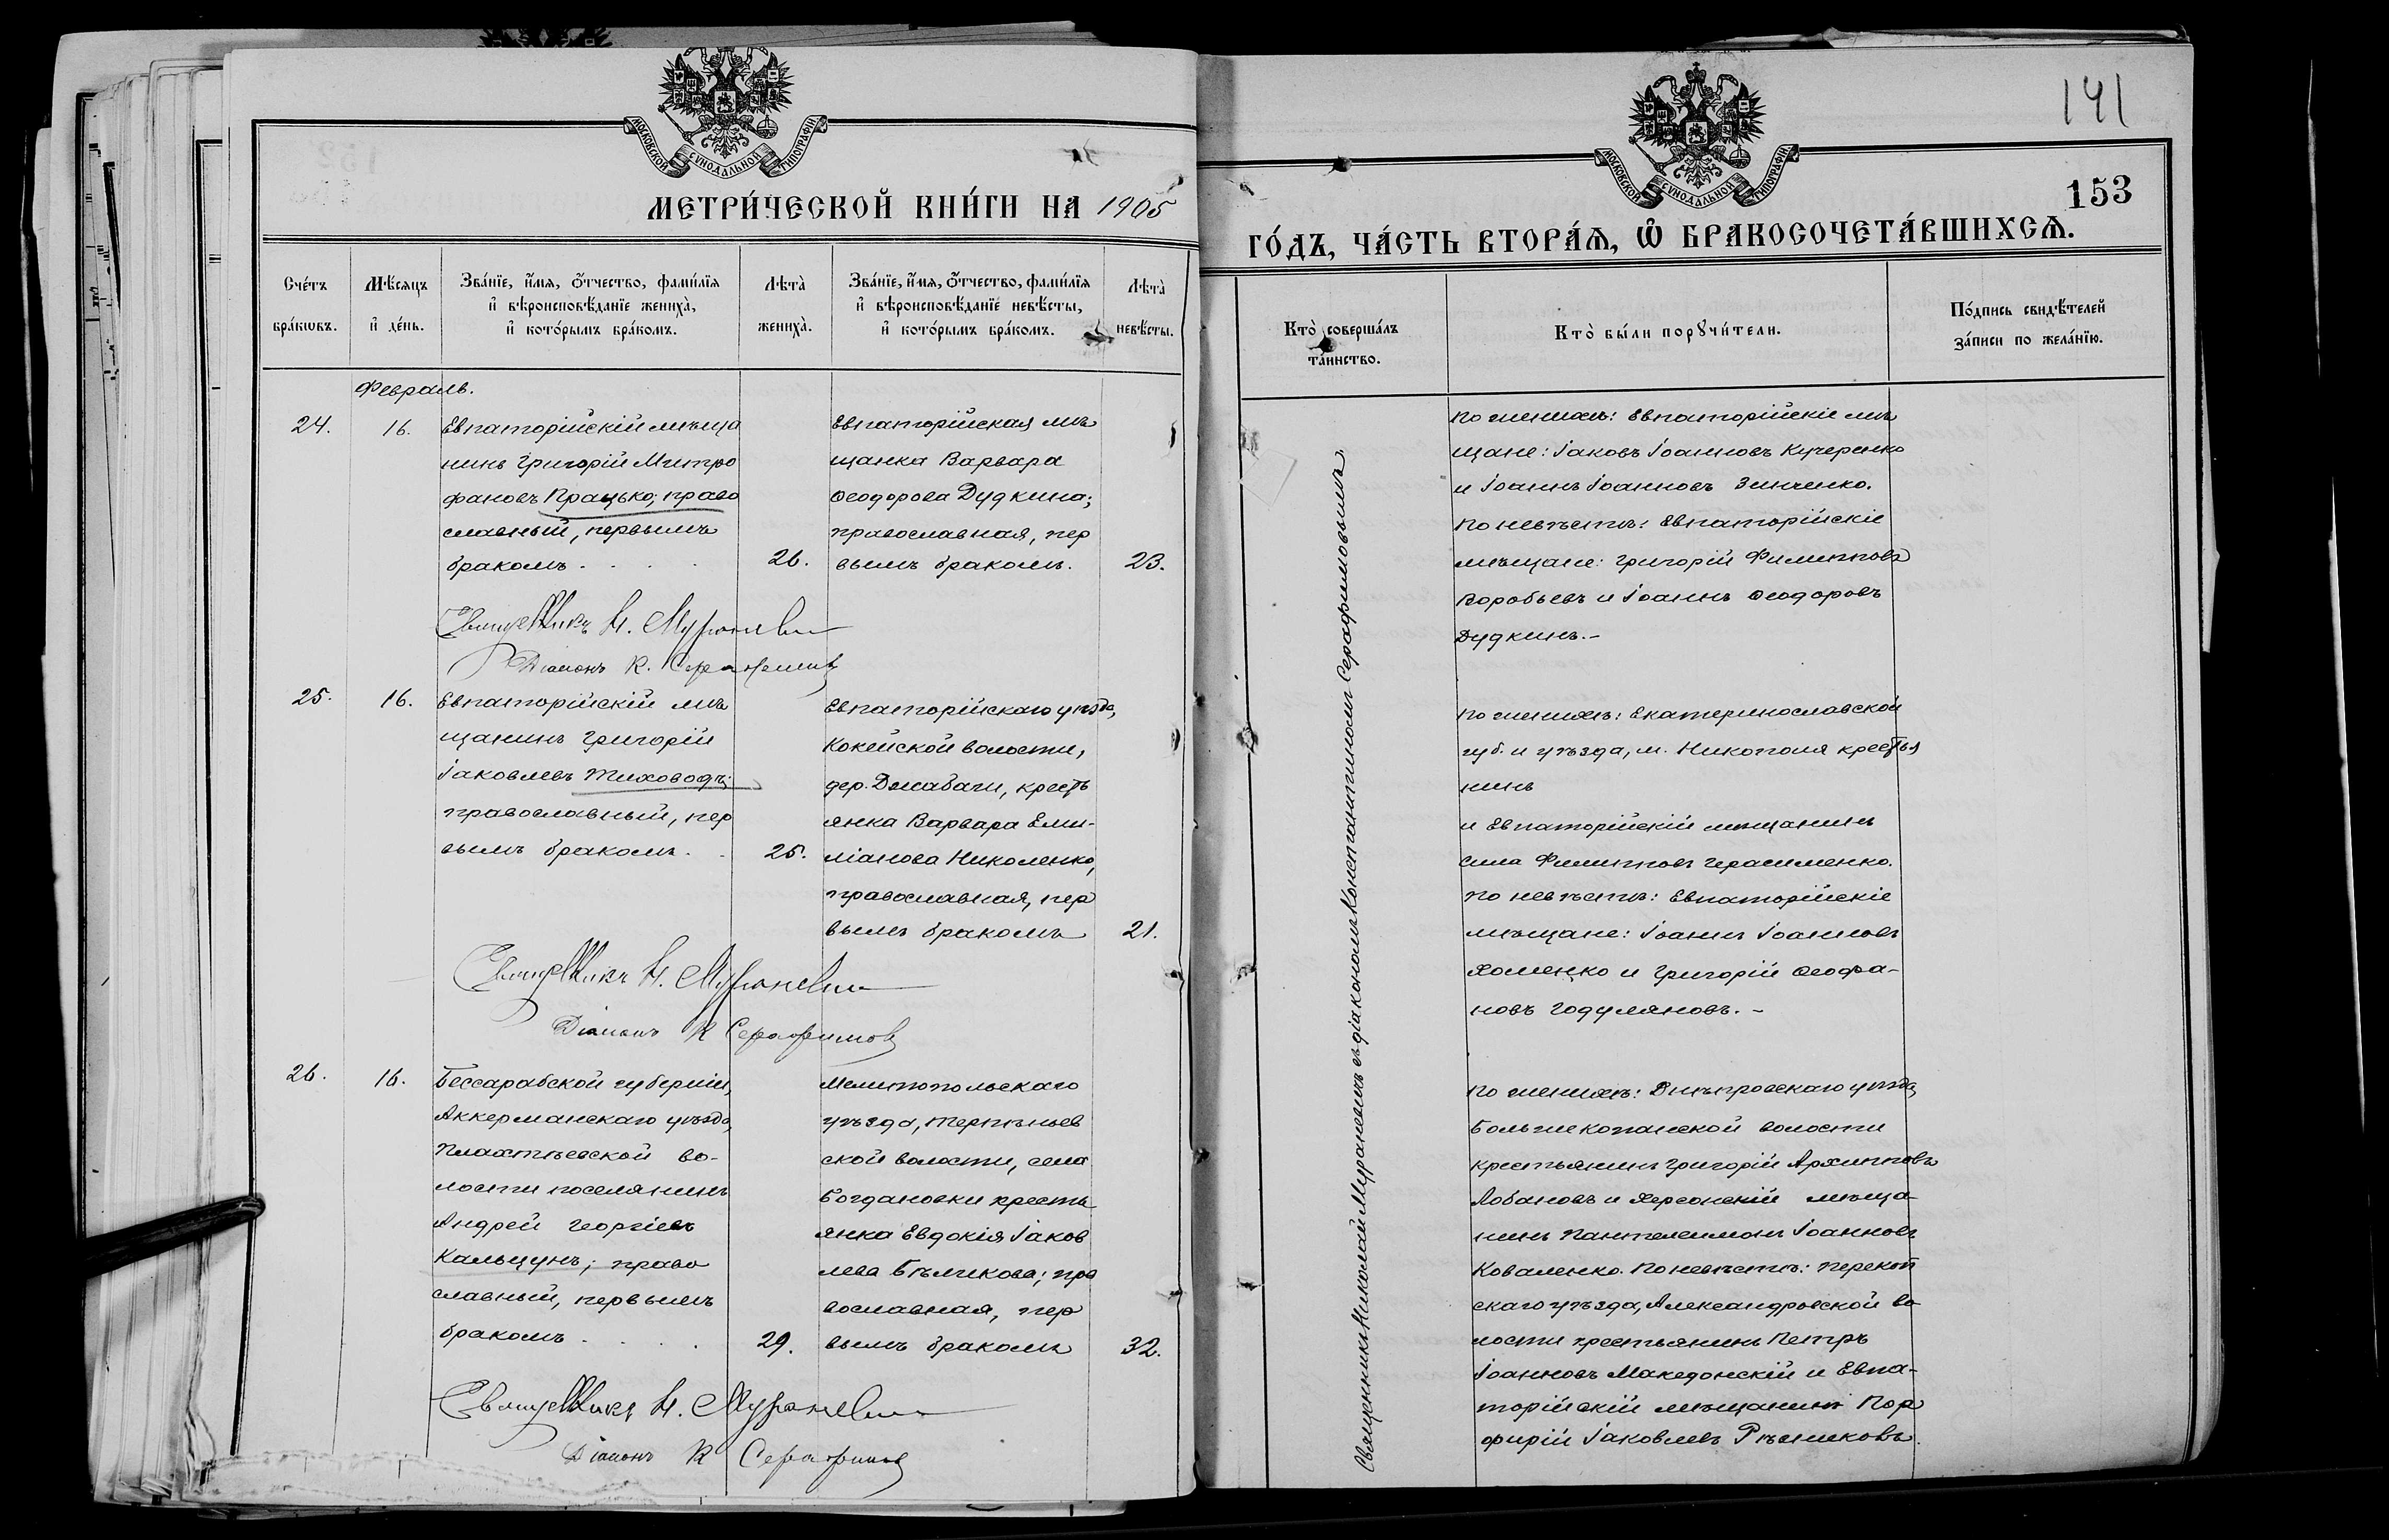 МОСКОВСКОЙ СѴНОДАЛЬНОЙ ТИПОГРАФІИ
МЕТРИ́ЧЕСКОЙ КНИ́ГИ НА 1905
Сче́тъ бра́кѡвъ.
Мѣ́сяцъ и҆ де́нь.
Зва́нїе, и҆́мя, ѻ҆́тчество, фами́лїя
и҆ вѣроисповѣ́данїе жениха̀,
и҆ кото́рымъ бра́комъ.
Лѣта̀ жениха̀.
Зва́нїе, и҆́мя, ѻ҆́тчество, фами́лїя
и҆ вѣроисповѣ́данїе невѣ́сты,
и҆ кото́рымъ бра́комъ.
Лѣта̀ невѣ́сты.
Февраль.
24.
16.
Евпаторійскій мѣща
нинъ Григорій Митро
фановъ Працько; право
славный, первымъ
бракомъ . . . .
26.
Евпаторійская мѣ
щанка Варвара
Ѳеодорова Дудкина;
православная, пер
вымъ бракомъ.
23.
Священникъ Н. Мураневичъ
Діаконъ К. Серафимовъ
25.
16.
Евпаторійскій мѣ
щанинъ Григорій
Іаковлевъ Тиховодъ;
православный, пер
вымъ бракомъ. .
25.
Евпаторійскаго уѣзда,
Кокейской волости,
дер. Джабаги, кресть
янка Варвара Еми-
ліанова Николенко,
православная, пер
вымъ бракомъ
21.
Священникъ Н. Мураневичъ
Діаконъ К Серафимовъ
26.
16.
Бессарабской губерніи,
Аккерманскаго уѣзда,
Плахтѣевской во-
лости поселянинъ
Андрей Георгіевъ
Кальцунъ; право
славный, первымъ
бракомъ . . . .
29.
Мелитопольскаго
уѣзда, Терпѣньев
ской волости, села
Богдановки кресть
янка Евдокія Іаков
лева Бѣликова; пра
вославная, пер
вымъ бракомъ
32.
Священникъ Н. Мураневичъ
Діаконъ К Серафимовъ
141
МОСКОВСКОЙ СѴНОДАЛЬНОЙ ТИПОГРАФІИ
153
ГО́ДЪ, ЧА́СТЬ ВТОРА́Я, Ѡ҆ БРАКОСОЧЕТА́ВШИХСѦ.
Кто̀ соверша́лъ
та́инство.
Кто̀ бы́ли порꙋчи́тели.
По́дпись свидѣ́телей
за́писи по жела́нїю.
Священникъ Николай Мураневичъ съ діакономъ Константиномъ Серафимовымъ.
По женихѣ: Евпаторійскіе мѣ
щане: Іаковъ Іоанновъ Кучеренко
и Іоаннъ Іоанновъ Зинченко.
По невѣстѣ: Евпаторійскіе
мѣщане: Григорій Филипповъ
Воробьевъ и Іоаннъ Ѳеодоровъ
Дудкинъ.-
По женихѣ: Екатеринославской
губ. и уѣзда, м. Никополя крестья
нинъ
и Евпаторійскій мѣщанинъ
Сила Филипповъ Герасименко.
По невѣстѣ: Евпаторійскіе
мѣщане: Іоаннъ Іоанновъ
Хоменко и Григорій Ѳеофа-
новъ Годуляновъ. -
По женихѣ: Днѣпровскаго уѣзда,
Большекопанской волости
крестьянинъ Григорій Архипповъ
Лобановъ и Херсонскій мѣща
нинъ Пантелеимонъ Іоанновъ
Коваленко. По невѣстѣ: Перекоп
скаго уѣзда, Александровской во
лости крестьянинъ Петръ
Іоанновъ Македонскій и Евпа-
торійскій мѣщанинъ Пор
фирій Іаковлевъ Рѣзниковъ.